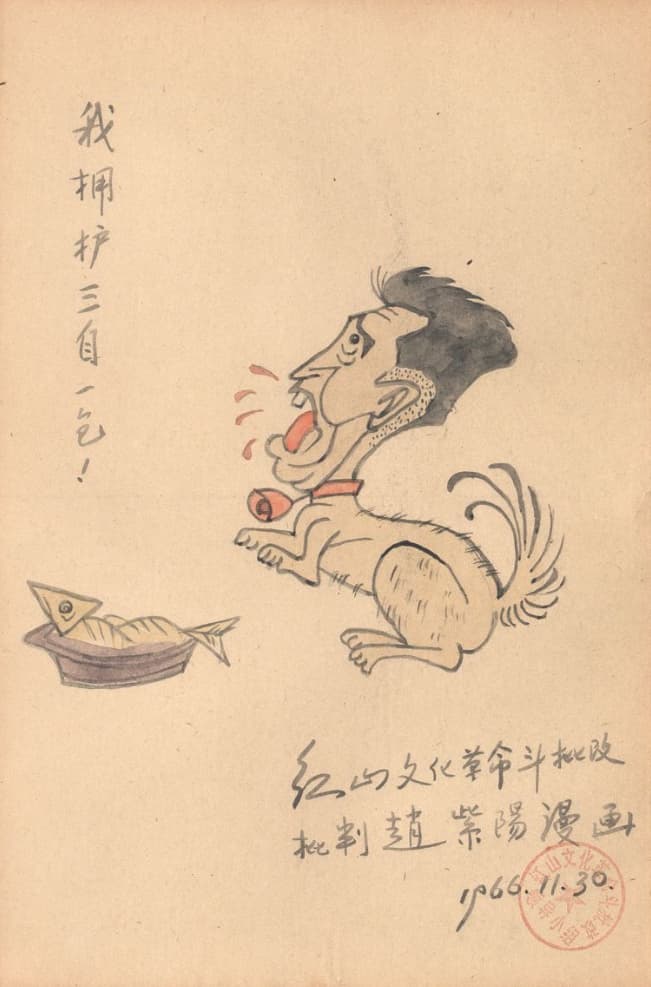 我拥护三自一包!
红山文化革命斗批改
批判趙紫陽漫画
1966.11.30.